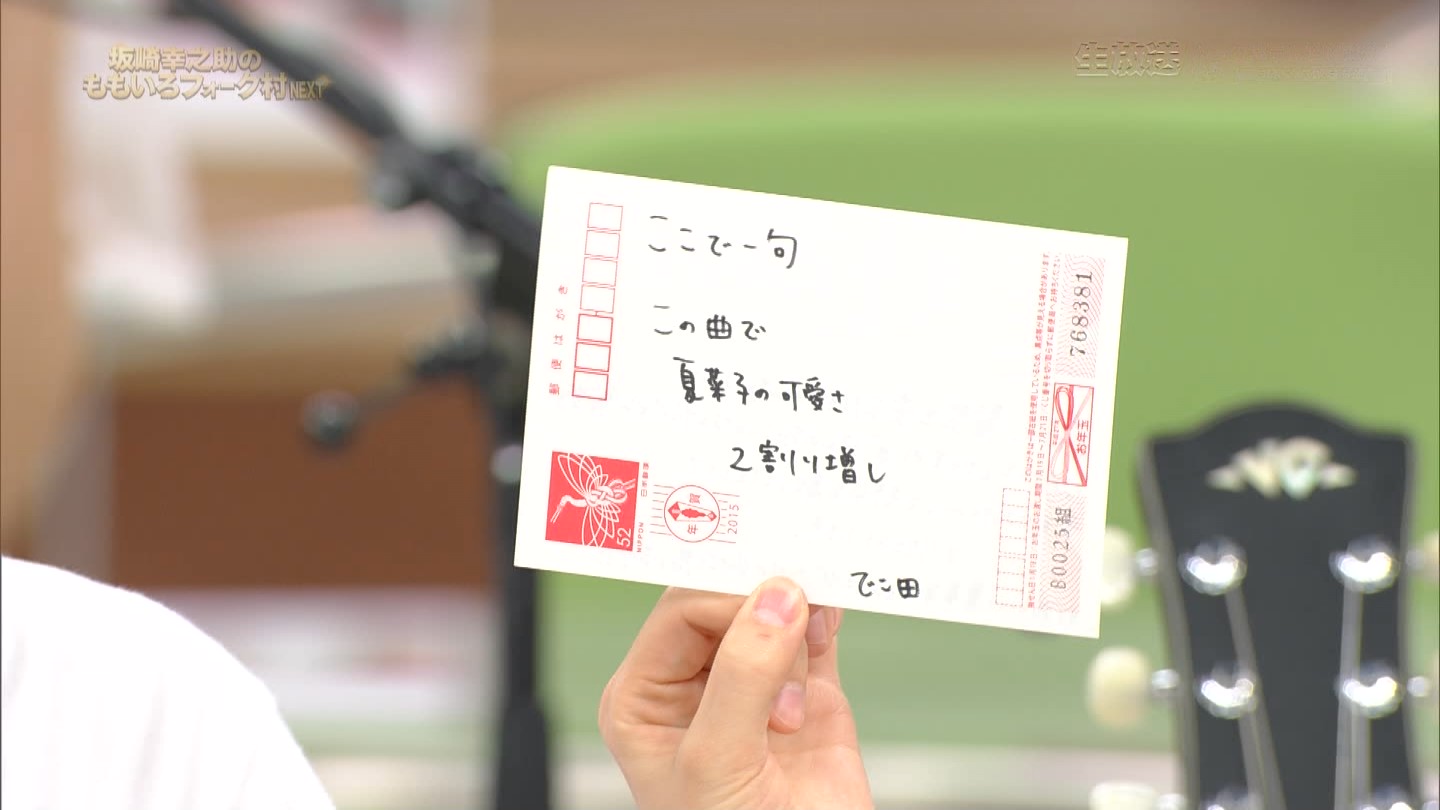 坂崎幸之助の
ももいろフォーク村NEXT
生放送
ここで一句
この曲で
夏菜子の可愛さ
2割り増し
でこ田
郵便はがき
日本郵便
52
NIPPON
年賀
2015
768381
お年玉
B0025組
NG